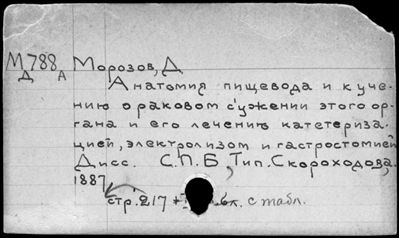 М 788 Морозов, Д
Д А
Анатомия пищевода и к уче-
нию о раковом съужении этого ор-
гана и его лечению катетериза-
цией, электролизом и гастростомией
Дисс. С.П.Б, Тип. Скороходова,
1887
стр. 217 + бл. с табл.